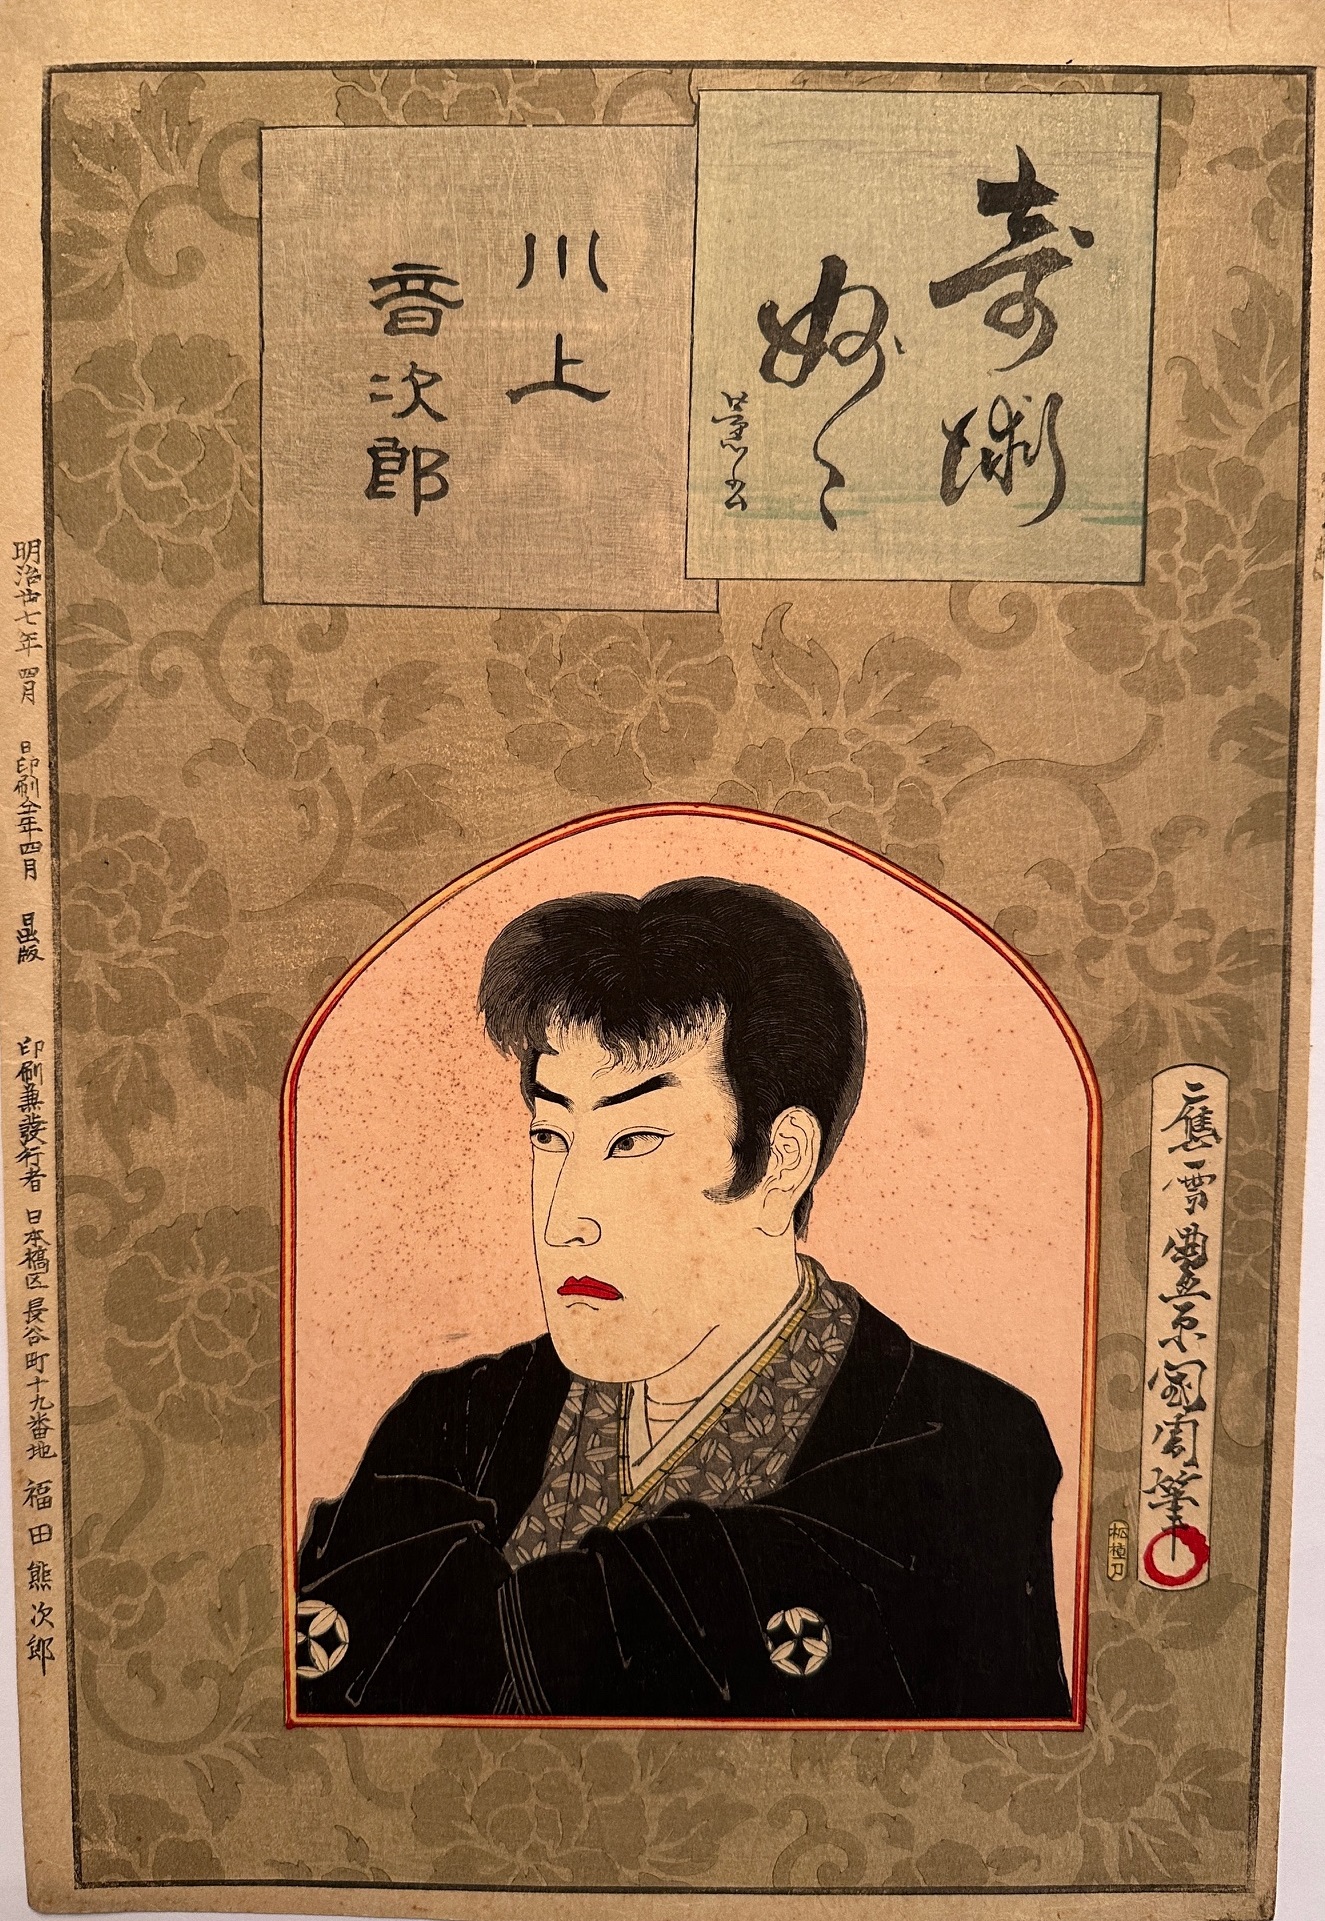 奇術
妙々
川上
音次郎
應需豊原国周筆
松刀
明治廿七年四月 日印刷仝年四月 日出版
印刷兼発行者 日本橋区長谷町十九番地 福田熊次郎